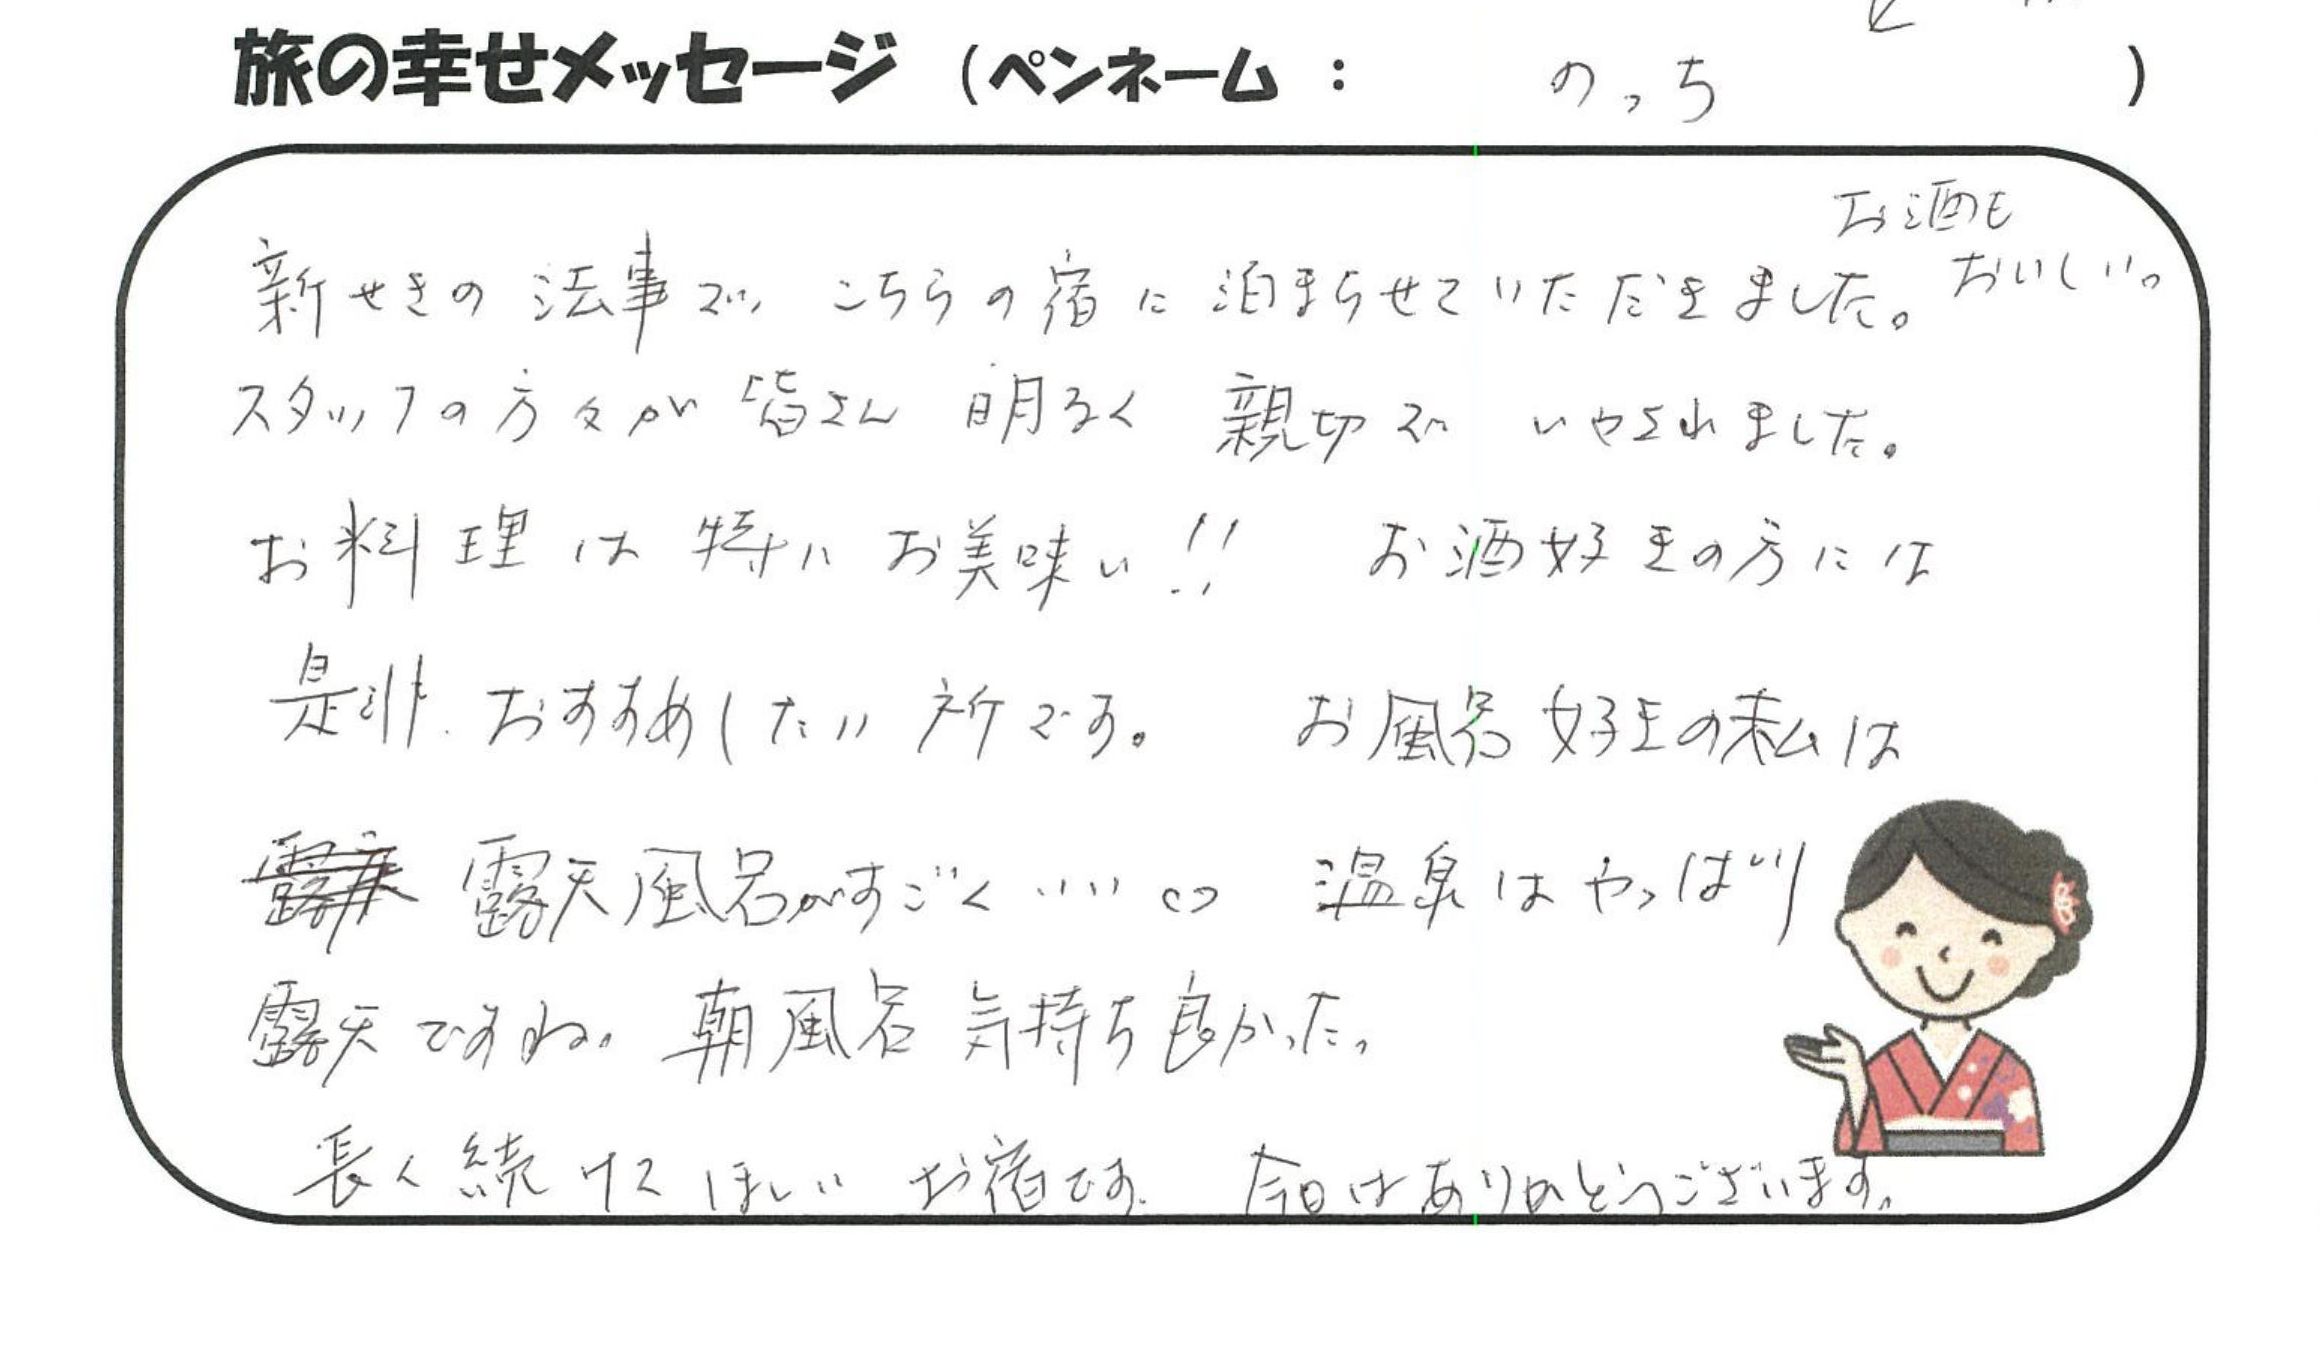 旅の幸せメッセージ (ペンネーム : のっち )
お酒も
おいしい。
新せきの法事で、こちらの宿に泊まらせていただきました。
スタッフの方々が皆さん 明るく 親切で いやされました。
お料理は特に お美味い!! お酒好きの方には
是非、おすすめしたい所です。 お風呂好きの私は
露天風呂がすごくいい 温泉はやっぱり
露天ですね。朝風呂 気持ち良かった。
長く続けてほしい お宿です。 今日はありがとうございます。